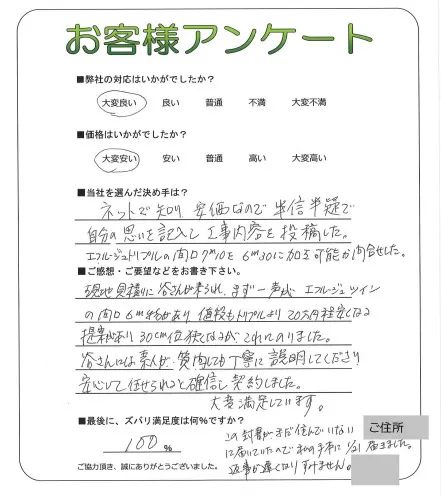 お客様アンケート
■弊社の対応はいかがでしたか?
大変良い 良い 普通 不満 大変不満
■価格はいかがでしたか?
大変安い 安い 普通 高い 大変高い
■当社を選んだ決め手は?
ネットで知り 安価なので 半信半疑で
自分の思いを記入し工事内容を投稿した。
エフルージュトリプルの間口7m10を6m30に加工可能か問合せした。
■ご感想・ご要望などをお書き下さい。
現地見積りに谷さんが来られ、まず一声が エフルージュツイン
の間口6m物があり 値段もトリプルより20万程安くなる
提案があり 30cm位狭くなるが これにのりました。
谷さんには素人が 質問しても丁寧に説明してくださり
安心して任せられると確信し契約しました。
大変満足しています。
■最後に、ズバリ満足度は何%ですか?
100 %
ご協力頂き、誠にありがとうございました。
ご住所
この封書がまだ住んでいない
に届いていたので私の手本に 1/21 届きました。
返事が遅くなりすみません。